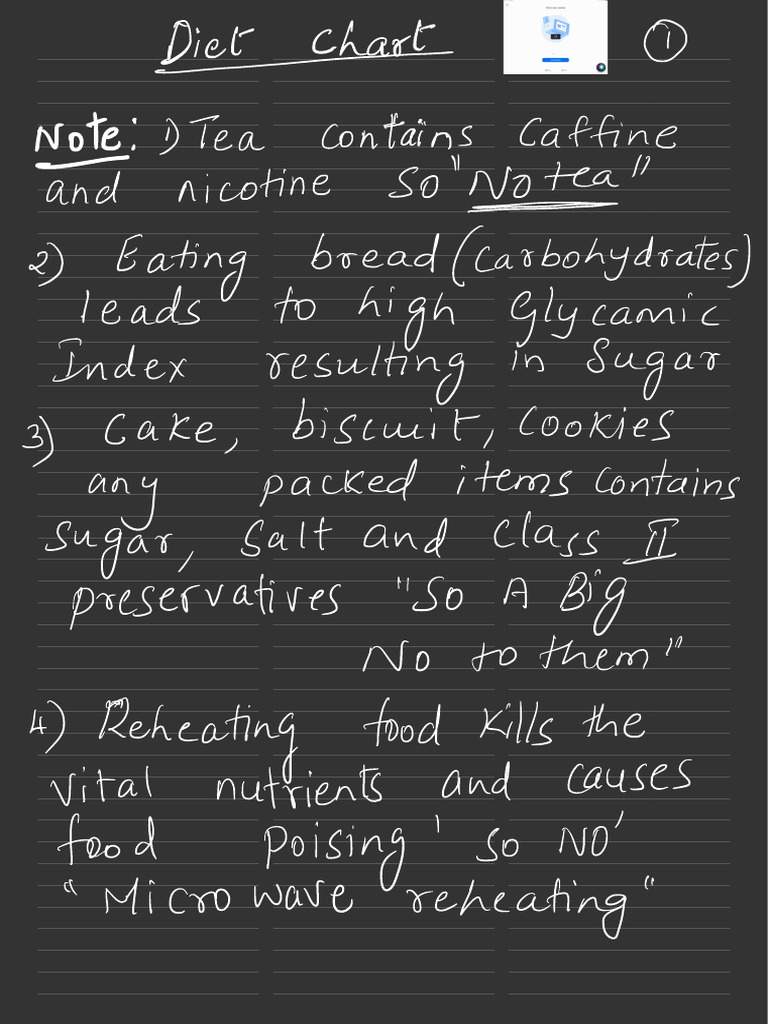 Diet Chart 1
Note: 1) Tea contains Caffine
and nicotine so "No tea"
2) Eating bread (carbohydrates)
leads to high Glycamic
Index resulting in Sugar
3) Cake, biscuit, cookies
any packed items contains
sugar, salt and class II
preservatives "So A Big
No to them"
4) Reheating food kills the
vital nutrients and causes
food poising ' so NO'
"Microwave reheating"